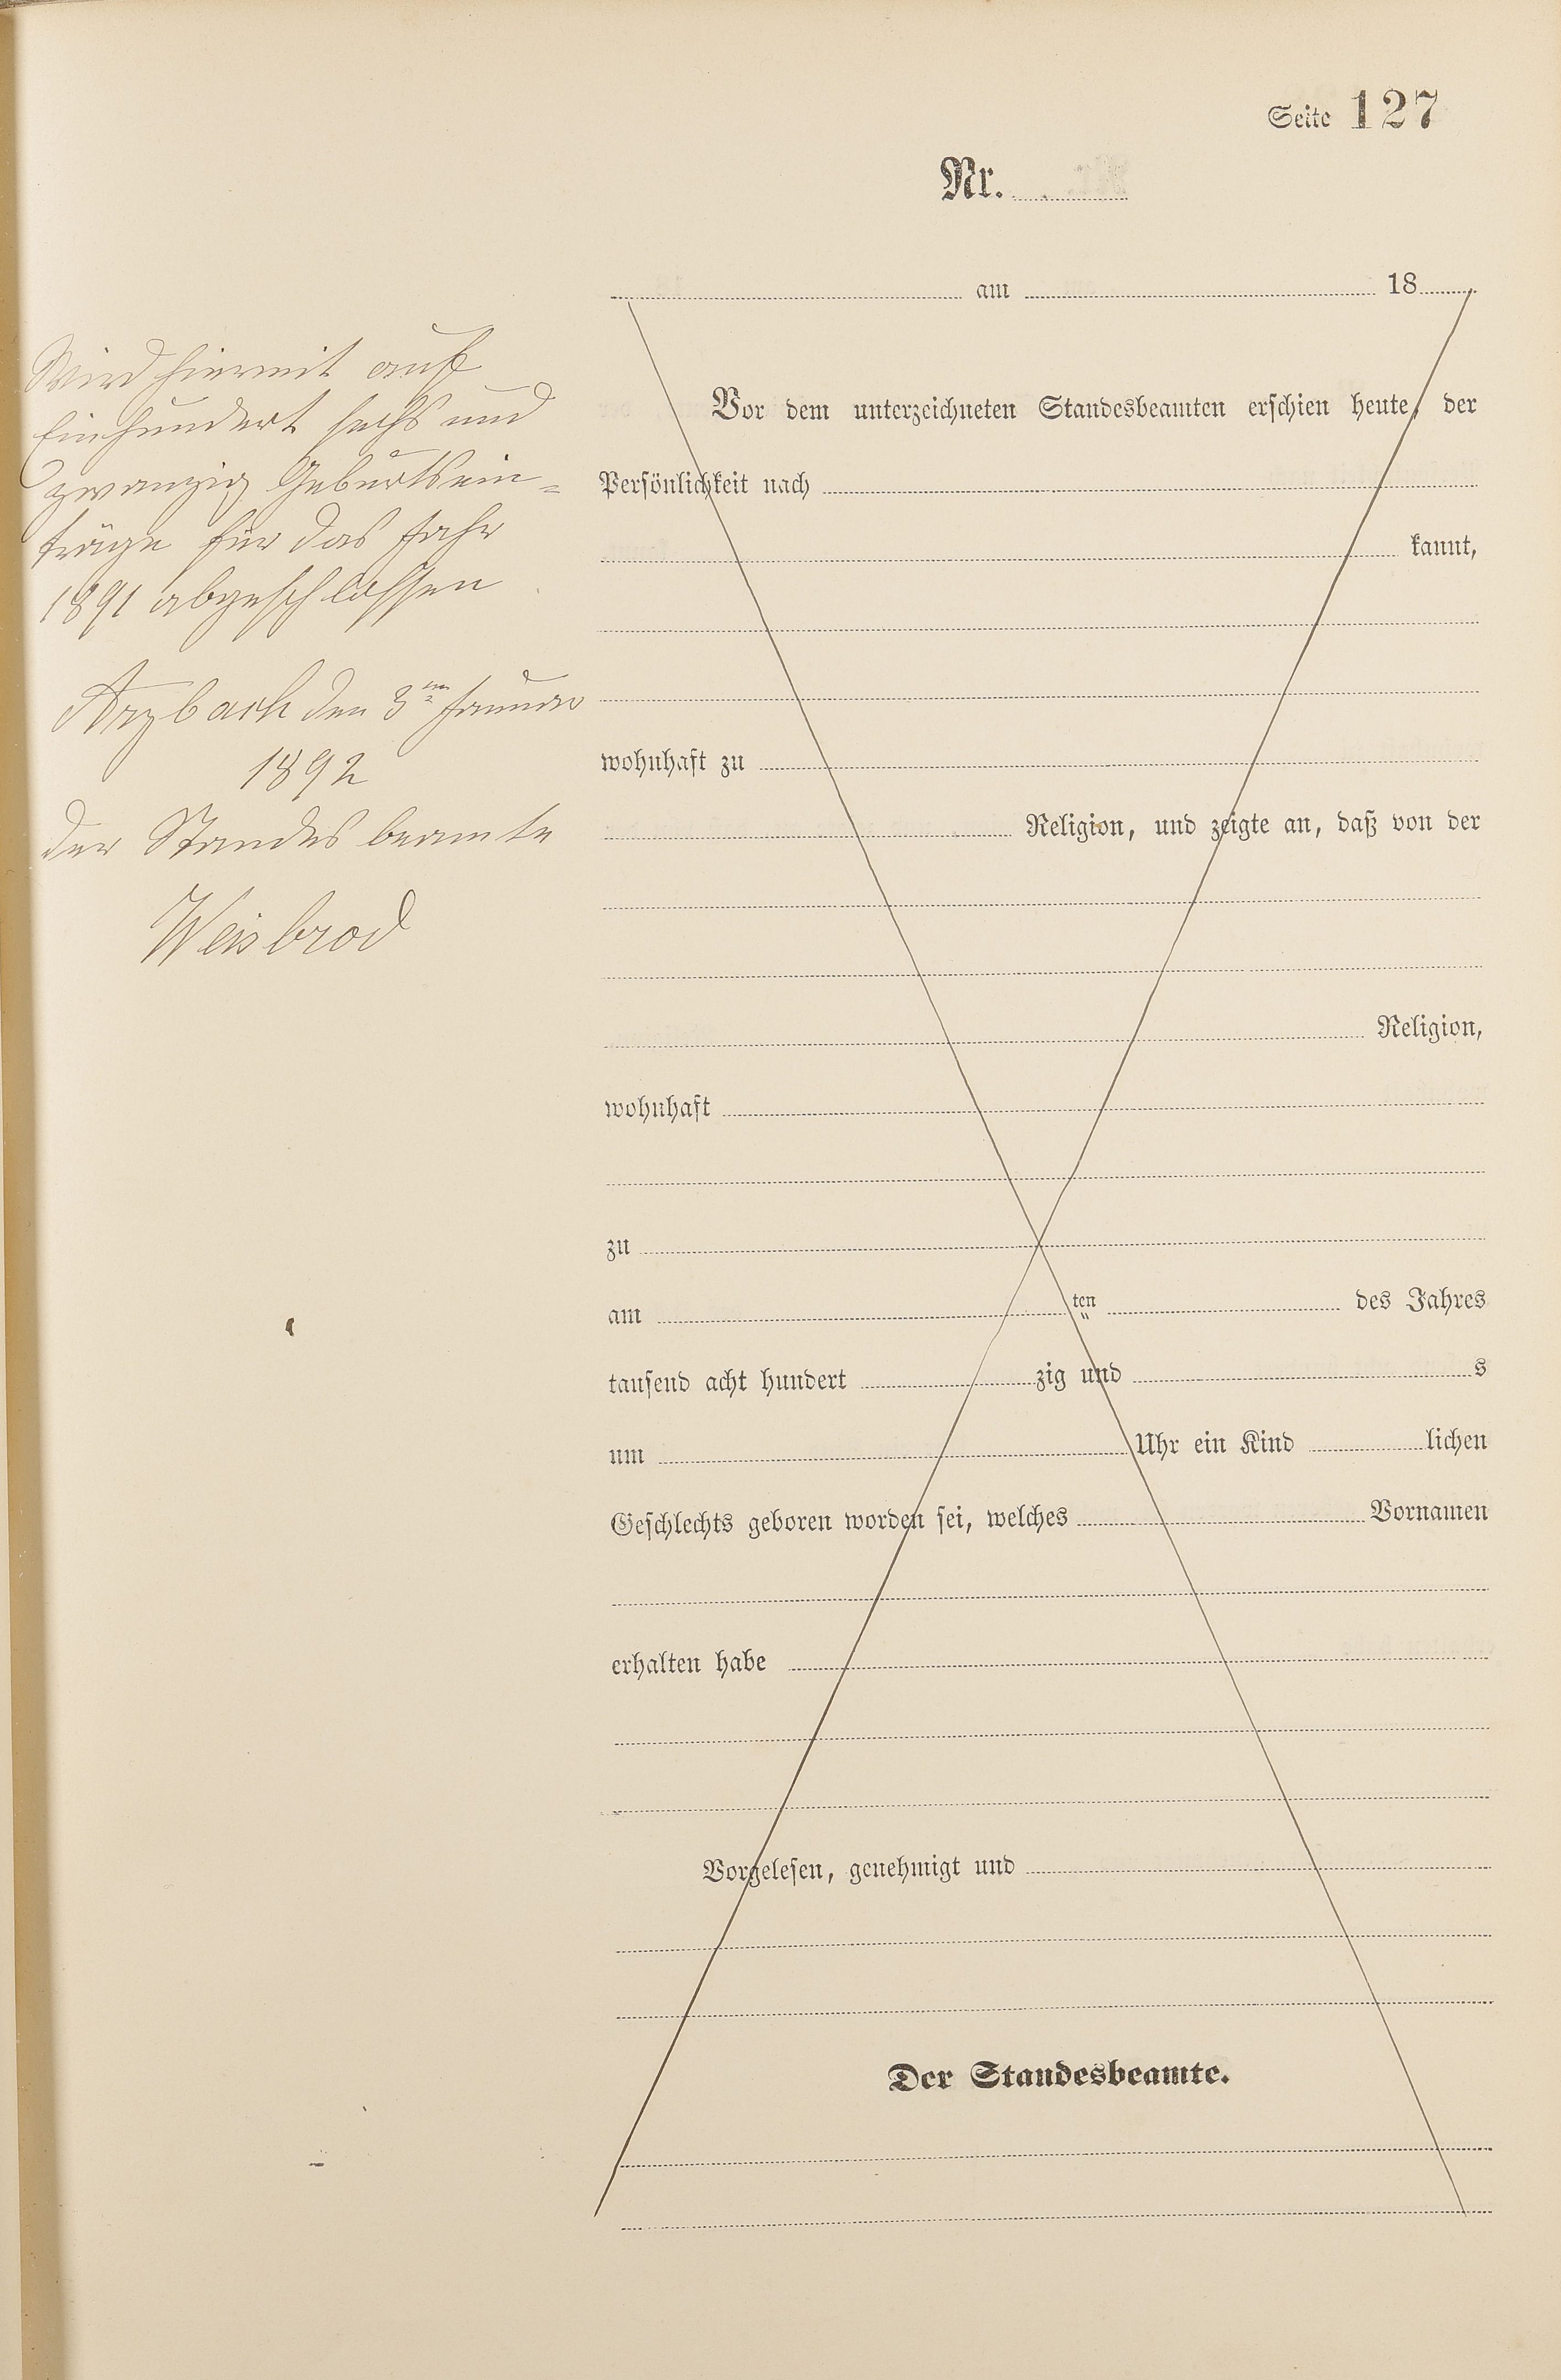 Seite 127
Nr.
am 18
Wird hiermit auf
Einhundert sechs und
zwanzig Geburtsein=
träge für das Jahr
1891 abgeschlossen
Arzbach den 3ten Januar
1892
der Standesbeamte
Weisbrod
Vor dem unterzeichneten Standesbeamten erschien heute, der
Persönlichkeit nach
kannt,
wohnhaft zu
Religion, und zeigte an, daß von der
Religion,
wohnhaft
zu
am ten des Jahres
tausend acht hundert zig und s
um Uhr ein Kind lichen
Geschlechts geboren worden sei, welches Vornamen
erhalten habe
Vorgelesen, genehmigt und
Der Standesbeamte.